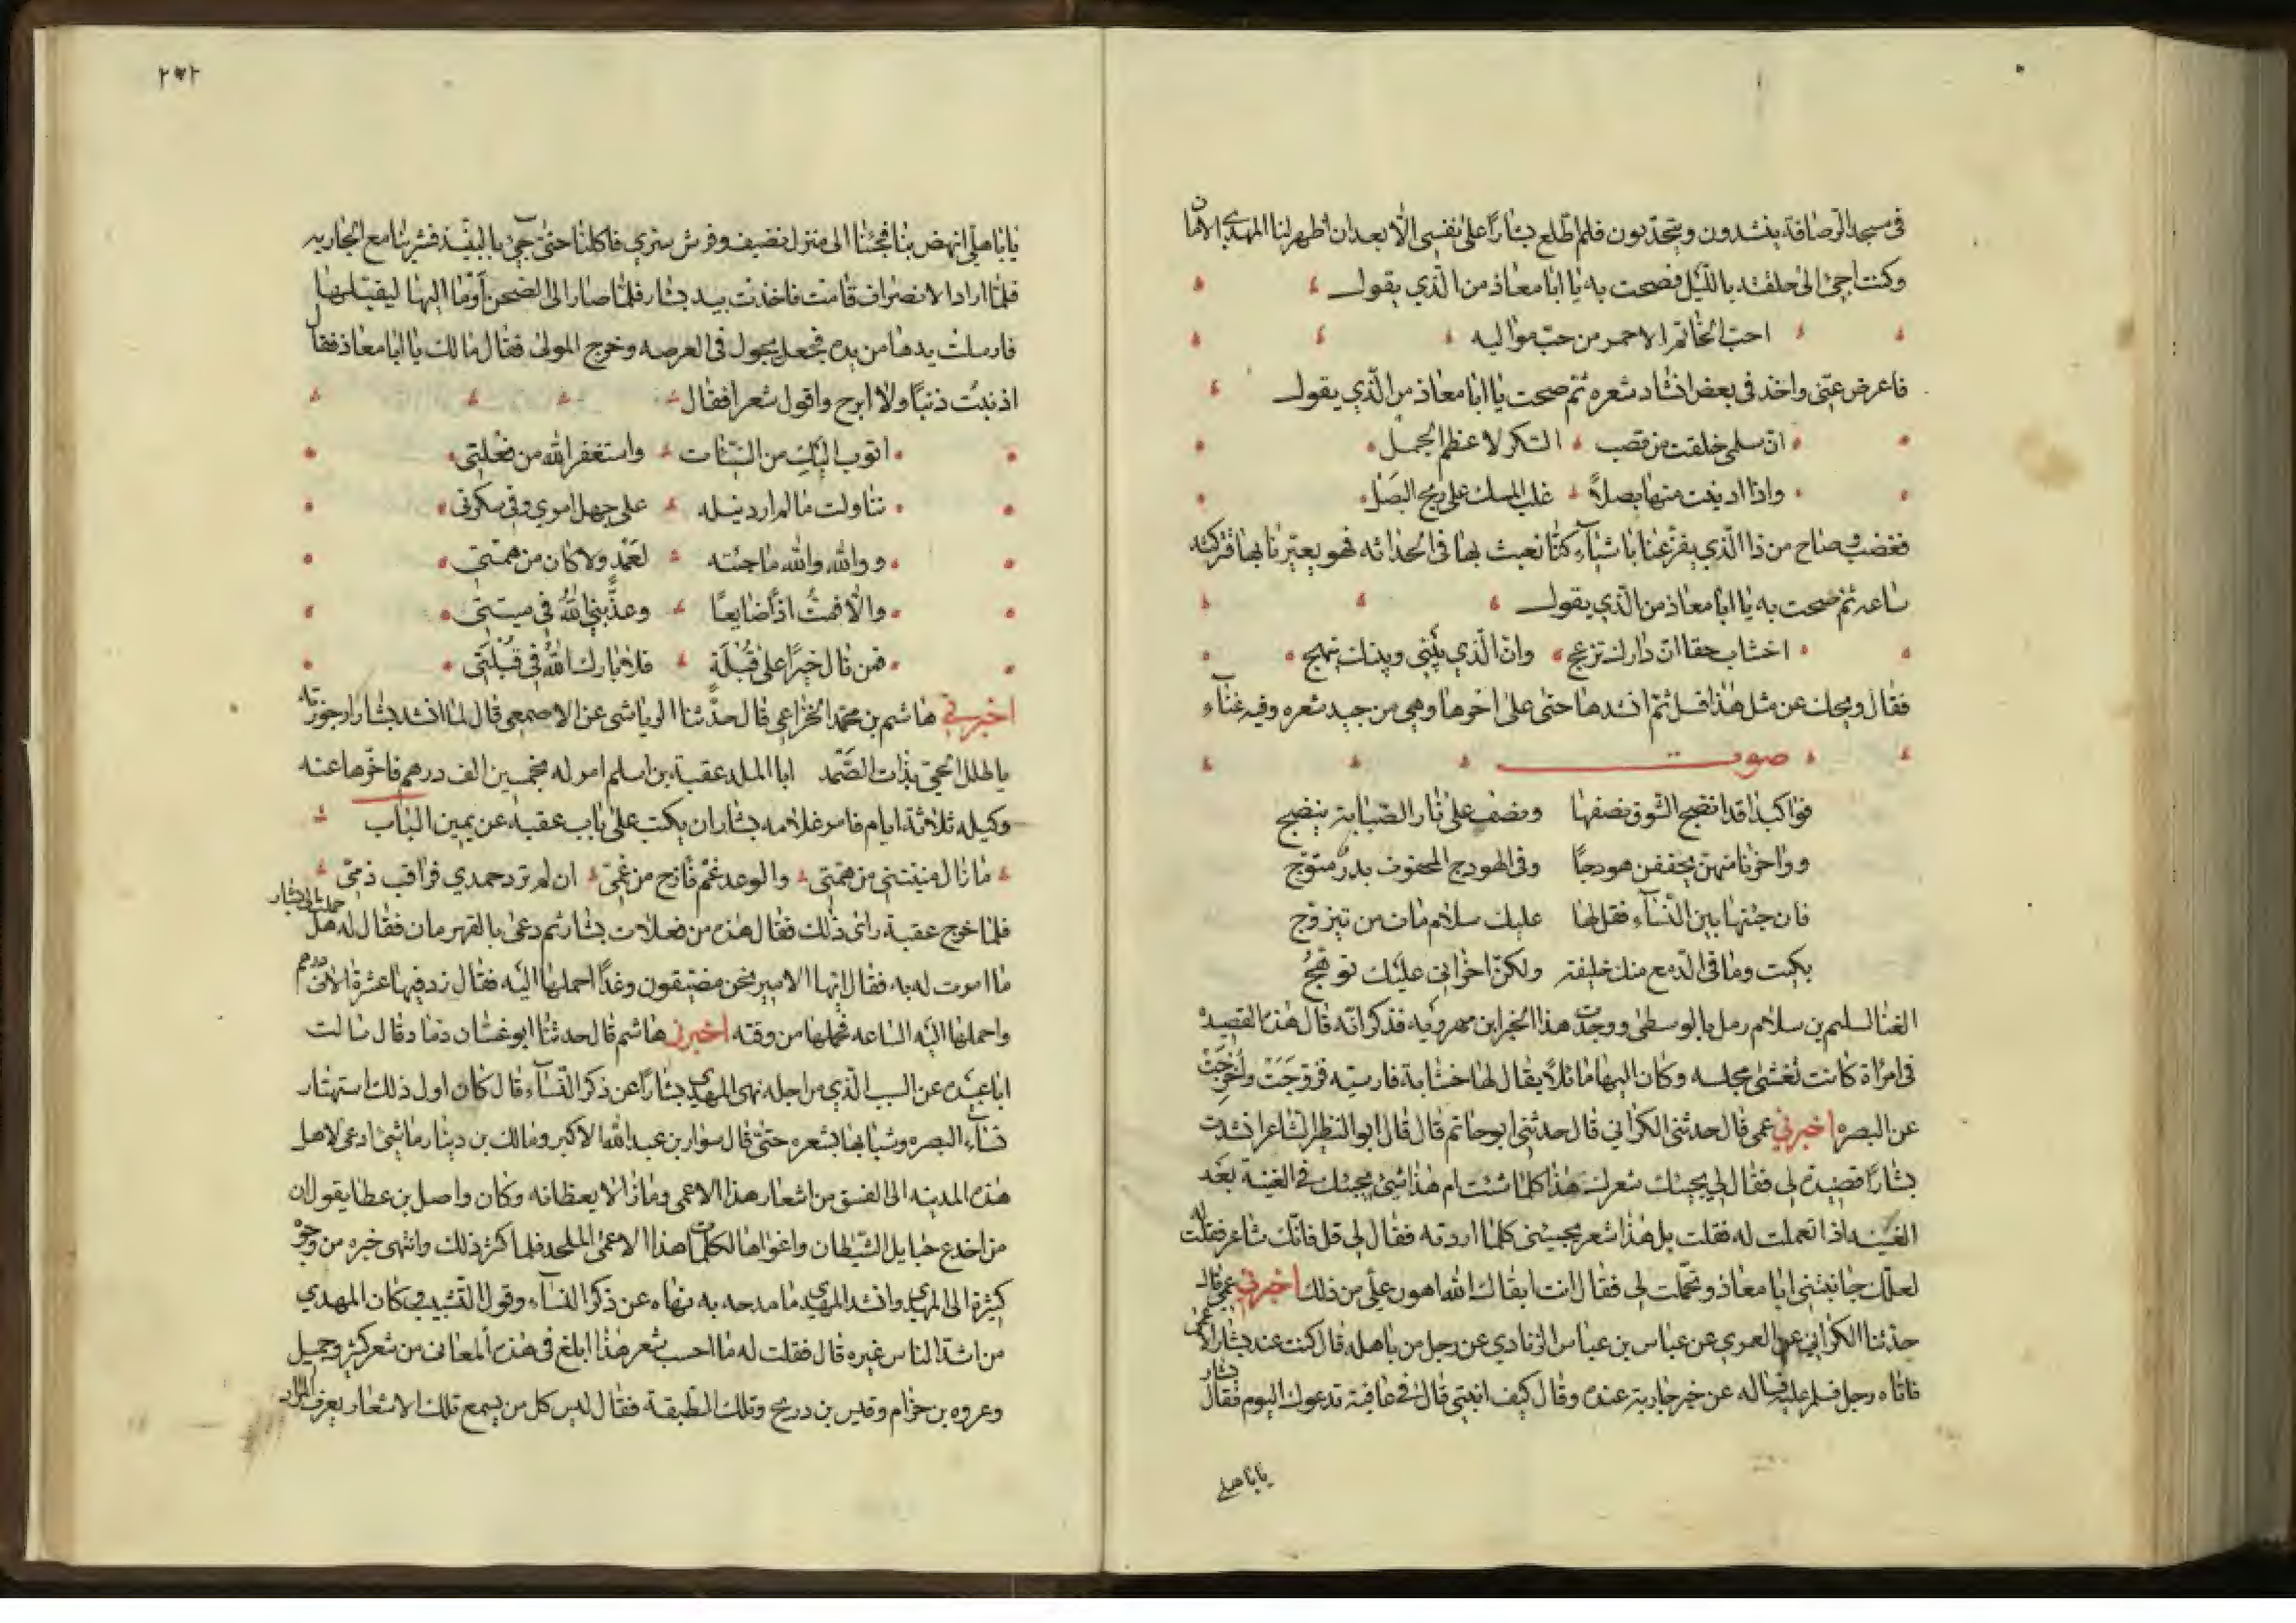 في مسجد الرصافة ينشدون ويتحدثون فلم اطلع بشارا على نفسي الا بعد ان اظهر لنا المهدي الامان
وكنت اجئ الى حلقته بالليل فصحت به يا ابا معاذ من الذي يقول
احب الخاتم الاحمر من حب مواليه
فاعرض عني واخذ في بعض انشاد شعره ثم صحت يا ابا معاذ من الذي يقول
ان سلمى خلقت من قصب السكر لا عظم الجمل
واذا ادنيت منها بصلا غلب المسك على ريح البصل
فغضب وصاح من ذا الذي يقرعنا باشياء كنا نعبث بها في الحداثه فهو يعيرنا بها فتركته
ساعه ثم صحت به يا ابا معاذ من الذي يقول
اخشاب حقا ان دارك تزعج وان الذي بيني وبينك ينهج
فقال ويحك عن مثل هذا فسل ثم انشدها حتى على اخرها وهي من جيد شعره وفيه غناء
صوت
فواكبدا قد انضج الشوق نصفها ونصف على نار الصبابة ينضج
وواحزنا منهن يحففن هودجا وفي الهودج المحفوف بدر متوج
فان جئتها بين النساء فقل لها عليك سلام مات من تيزوج
بكيت وما في الدمع منك خليفة ولكن احزاني عليك توهج
الغنا لسليم بن سلام رمل بالوسطى ووجدت هذا الخبر ابن مهرويه فذكر انه قال هذه القصيده
في امراة كانت تغشى مجلسه وكان اليها مائلا يقال لها خشابة فارسيه فزوجت واخرجت
عن البصره اخبرني عمي قال حدثني الكراني قال حدثني ابو حاتم قال قال ابو النظر الشاعر انشدت
بشارا قصيدة لي فقال لي يجيئك شعرك هذا كلما شئت ام هذا شئ يجيئك في الفينة بعد
الفينه اذا تعملت له فقلت بل هذا شعر يجيئني كلما اردته فقال لي قل فانك شاعر فقلت له
لعلك حابيتني ابا معاذ وتحملت لي فقال انت ابقاك الله اهون علي من ذلك اخبرني عمي قال
حدثنا الكراني عن العمري عن عباس بن عباس الزنادي عن رجل من باهله قال كنت عند بشار الاعمى
فاتاه رجل فسلم عليه فساله عن خبر جارية عنده وقال كيف ابنتي قال في عافية تدعوك اليوم فقال بشار
يا باهلي
٢٧٢
يا باهلي انهض بنا فجئنا الى منزل نضيف وفرش سري فاكلنا حتى جئ بالنبيذ فشربنا مع الجاريه
فلما اراد الانصراف قامت فاخذت بيد بشار فلما صار الى الصحن اوما اليها ليقبلها
فارسلت يدها من يده فجعل يجول في العرصه وخرج المولى فقال مالك يا ابا معاذ فقال
اذنبت ذنبا ولا ابرح واقول شعرا فقال
اتوب اليك من السيئات واستغفر الله من فعلتي
تناولت ما لم ارد نيله على جهل امري وفي سكرتي
ووالله والله ما جئته لعمد ولا كان من همتي
والا فمت اذا ضايعا وعذبني الله في ميتتي
فمن نال خيرا على قبلة فلا بارك الله في قبلتي
اخبرني هاشم بن محمد الخزاعي قال حدثنا الرياشي عن الاصمعي قال لما انشد بشار ارجوزته
يا طلل الحي بذات الصمد ابا الملد عقبة بن اسلم امر له بخمسين الف درهم فاخرها عنه
وكيله ثلاثة ايام فامر غلامه بشار ان يكتب على باب عقبة عن يمين الباب
ما زال منيتني من همتي والوعد غم فازح من غمي ان لم ترد حمدي فراقب ذمي
فلما خرج عقبة راى ذلك فقال هذه من فعلات بشار ثم دعى بالقهرمان فقال له هل حملت الى بشار
ما امرت له به فقال ايها الامير نحن مضيقون وغدا احملها اليه فقال زد فيها عشرة الاف درهم
واحملها اليه الساعه فحملها من وقته اخبرني هاشم قال حدثنا ابو غسان دماد قال سالت
ابا عبيده عن السبب الذي من اجله نهى المهدي بشارا عن ذكر النساء قال كان اول ذلك استهتار
نساء البصره وشبابها بشعره حتى قال سوار بن عبد الله الاكبر ومالك بن دينار ما شئ ادعى لاهل
هذه المدينه الى الفسق من اشعار هذا الاعمى وما زالا يعظانه وكان واصل بن عطا يقول ان
من اخدع حبايل الشيطان واغواها لكلمات هذا الاعمى الملحد فلما كثر ذلك وانتهى خبره من وجوه
كثيرة الى المهدي وانشد المهدي ما مدحه به نهاه عن ذكر النساء وقول التشبيب وكان المهدي
من اشد الناس غيره قال فقلت له ما احسب شعر هذا ابلغ في هذه المعاني من شعر كثير وجميل
وعروه بن حزام وقيس بن دريح وتلك الطبقة فقال ليس كل من يسمع تلك الاشعار يعرف المراد